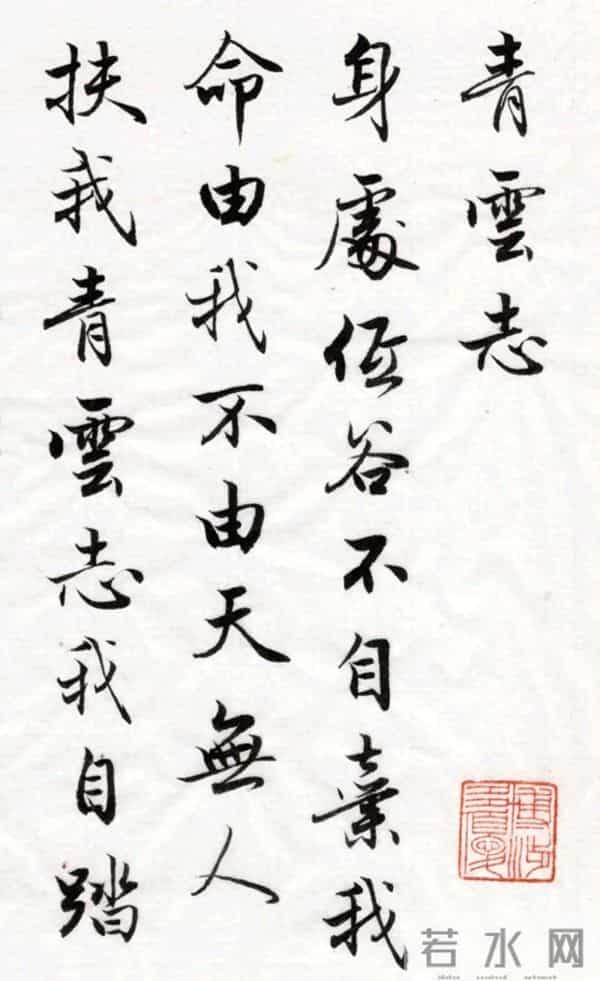 青雲志
身處低谷不自棄我
命由我不由天無人
扶我青雲志我自踏
若水网